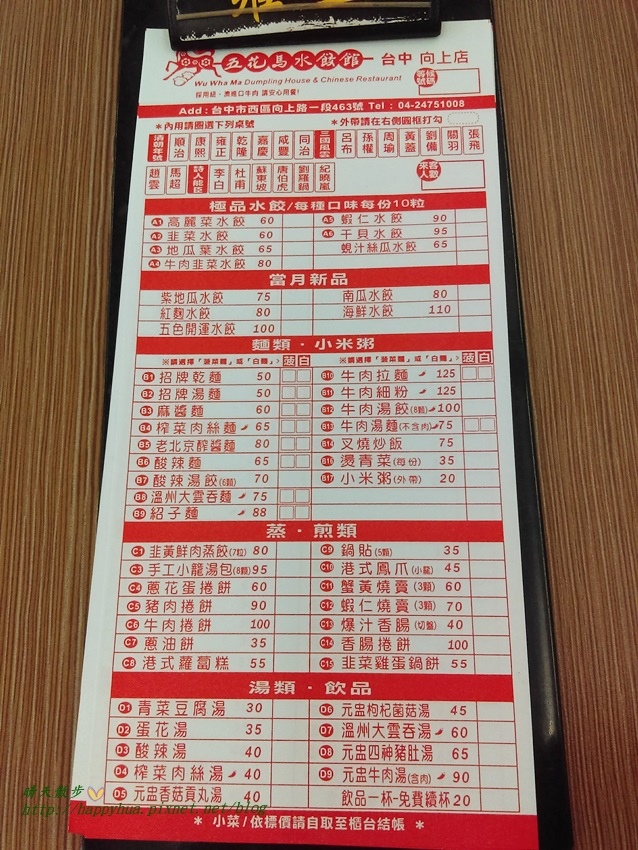 五花馬水餃館 台中 向上店
Wu Wha Ma Dumpling House & Chinese Restaurant
採用紐、澳進口牛肉 請安心用餐!
等候號碼
Add : 台中市西區向上路一段463號 Tel : 04-24751008
*內用請圈選下列桌號 *外帶請在右側圓框打勾
清朝年號 順治 康熙 雍正 乾隆 嘉慶 咸豐 同治 三國風雲 呂布 孫權 周瑜 黃蓋 劉備 關羽 張飛
趙雲 馬超 詩人能臣 李白 杜甫 蘇東坡 唐伯虎 劉羅鍋 紀曉嵐 來客人數
極品水餃/每種口味每份10粒
A1 高麗菜水餃 60 A5 蝦仁水餃 90
A2 韭菜水餃 60 A6 干貝水餃 95
A3 地瓜葉水餃 65 蜆汁絲瓜水餃 65
A4 牛肉韭菜水餃 80
當月新品
紫地瓜水餃 75 南瓜水餃 80
紅麴水餃 80 海鮮水餃 110
五色開運水餃 100
麵類・小米粥
※請選擇「菠菜麵」或「白麵」> 菠 白 ※請選擇「菠菜麵」或「白麵」> 菠 白
B1 招牌乾麵 50 B10 牛肉拉麵 125
B2 招牌湯麵 50 B11 牛肉細粉 125
B3 麻醬麵 60 B12 牛肉湯餃(8顆) 100
B4 榨菜肉絲麵 65 B13 牛肉湯麵(不含肉) 75
B5 老北京酢醬麵 80 B14 叉燒炒飯 75
B6 酸辣麵 65 B16 燙青菜(每份) 35
B7 酸辣湯餃(6顆) 70 B17 小米粥(外帶) 20
B8 溫州大雲吞麵 75
B9 紹子麵 88
蒸・煎類
C1 韭黃鮮肉蒸餃(7粒) 80 C9 鍋貼(5顆) 35
C3 手工小籠湯包(8顆) 95 C10 港式鳳爪(小籠) 45
C4 蔥花蛋捲餅 60 C11 蟹黃燒賣(3顆) 60
C5 豬肉捲餅 90 C12 蝦仁燒賣(3顆) 70
C6 牛肉捲餅 100 C13 爆汁香腸(切盤) 40
C7 蔥油餅 35 C14 香腸捲餅 100
C8 港式蘿蔔糕 55 C15 韭菜雞蛋鍋餅 55
湯類・飲品
D1 青菜豆腐湯 30 D6 元盅枸杞菌菇湯 45
D2 蛋花湯 35 D7 溫州大雲吞湯 60
D3 酸辣湯 40 D8 元盅四神豬肚湯 65
D4 榨菜肉絲湯 40 D9 元盅牛肉湯(含肉) 90
D5 元盅香菇貢丸湯 40 飲品一杯-免費續杯 20
* 小菜/依標價請自取至櫃台結帳 *
晴天散步
http://happyhua.pixnet.net/blog